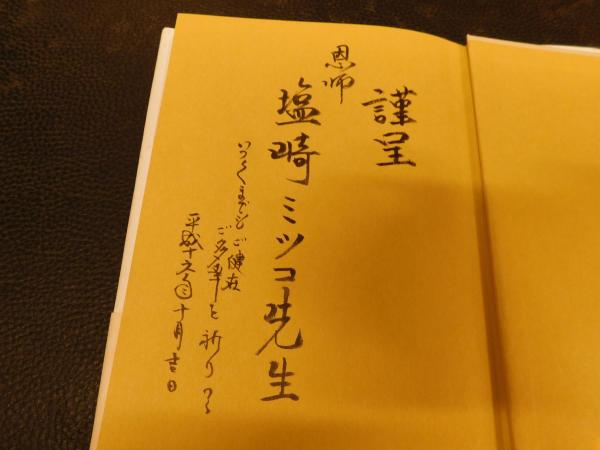 謹呈
恩師
塩崎ミツコ先生
いついつまでもご健在
ご多幸を祈りつつ
平成十六年十月吉日